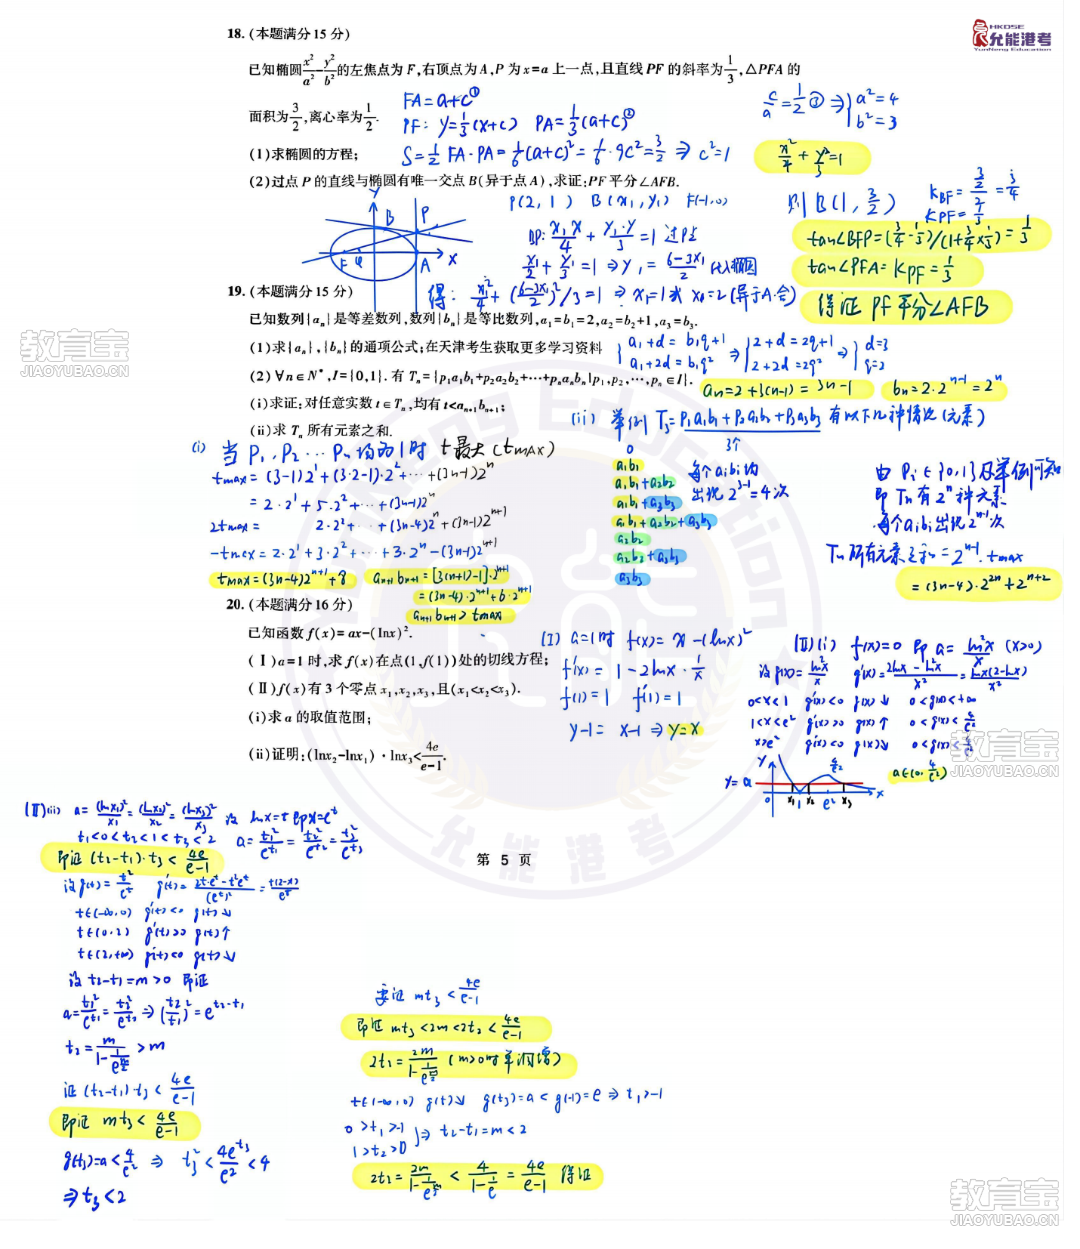 HKDSE
允能港考
YunNeng Education
18.(本题满分15分)
已知椭圆x²/a²-y²/b²的左焦点为F,右顶点为A,P为x=a上一点,且直线PF的斜率为1/3,△PFA的
面积为3/2,离心率为1/2.
FA=a+c①
PF: y=1/3(x+c) PA=1/3(a+c)②
S=1/2 FA·PA=1/6(a+c)²=1/6·9c²=3/2 ⇒ c²=1
c/a=1/2③⇒{a²=4
b²=3
x²/4+y²/3=1
(1)求椭圆的方程;
(2)过点P的直线与椭圆有唯一交点B(异于点A),求证:PF平分∠AFB.
P(2,1) B(x₁,y₁) F(-1,0)
BP: x₁x/4+y₁y/3=1 过P点
x₁/2+y₁/3=1⇒y₁=(6-3x₁)/2 代入椭圆
得: x₁²/4+((6-3x₁)/2)²/3=1 ⇒x₁=1或x₁=2(异于A,舍)
则B(1,3/2)
K_BF=(3/2)/2=3/4
K_PF=1/3
tan∠BFP=(3/4-1/3)/(1+3/4×1/3)=1/3
tan∠PFA=K_PF=1/3
得证PF平分∠AFB
y
B
P
F
A
x
19.(本题满分15分)
已知数列{aₙ}是等差数列,数列{bₙ}是等比数列,a₁=b₁=2,a₂=b₂+1,a₃=b₃.
(1)求{aₙ},{bₙ}的通项公式;在天津考生获取更多学习资料
{a₁+d=b₁q+1
a₁+2d=b₁q²
⇒{2+d=2q+1
2+2d=2q²
⇒{d=3
q=2
(2)∀n∈N*,I={0,1}.有Tₙ={p₁a₁b₁+p₂a₂b₂+…+pₙaₙbₙ|p₁,p₂,…,pₙ∈I}.
aₙ=2+3(n-1)=3n-1
bₙ=2·2ⁿ⁻¹=2ⁿ
(i)求证:对任意实数t∈Tₙ,均有t<aₙ₊₁bₙ₊₁;
(ii)求Tₙ所有元素之和.
(i) 当P₁,P₂…Pₙ均为1时 t最大(tmax)
tmax=(3-1)2¹+(3·2-1)·2²+…+(3n-1)2ⁿ
=2·2¹+5·2²+…+(3n-1)2ⁿ
2tmax= 2·2²+…+(3n-4)2ⁿ+(3n-1)2ⁿ⁺¹
-tmax=2·2¹+3·2²+…+3·2ⁿ-(3n-1)2ⁿ⁺¹
tmax=(3n-4)2ⁿ⁺¹+8
aₙ₊₁bₙ₊₁=[3(n+1)-1]·2ⁿ⁺¹
=(3n-4)·2ⁿ⁺¹+6·2ⁿ⁺¹
aₙ₊₁bₙ₊₁>tmax
(ii) 举例 T₃=P₁a₁b₁+P₂a₂b₂+P₃a₃b₃ 有以下几种情况(元素)
3个
0
a₁b₁
a₁b₁+a₂b₂
a₁b₁+a₃b₃
a₁b₁+a₂b₂+a₃b₃
a₂b₂
a₂b₂+a₃b₃
a₃b₃
每个aᵢbᵢ均
出现2³⁻¹=4次
由Pᵢ∈{0,1}及举例可知
即Tₙ有2ⁿ种元素
每个aᵢbᵢ出现2ⁿ⁻¹次
Tₙ所有元素之和=2ⁿ⁻¹·tmax
=(3n-4)·2²ⁿ+2ⁿ⁺²
20.(本题满分16分)
已知函数f(x)=ax-(lnx)².
(Ⅰ)a=1时,求f(x)在点(1,f(1))处的切线方程;
(Ⅱ)f(x)有3个零点x₁,x₂,x₃,且(x₁<x₂<x₃).
(i)求a的取值范围;
(ii)证明:(lnx₂-lnx₁)·lnx₃<4e/(e-1).
(I) a=1时 f(x)=x-(lnx)²
f'(x)=1-2lnx·1/x
f(1)=1 f'(1)=1
y-1=x-1⇒y=x
(II)(i) f(x)=0 即a=ln²x/x (x>0)
设g(x)=ln²x/x g'(x)=(2lnx-ln²x)/x²=lnx(2-lnx)/x²
0<x<1 g'(x)<0 g(x)↓ 0<g(x)<+∞
1<x<e² g'(x)>0 g(x)↑ 0<g(x)<4/e²
x>e² g'(x)<0 g(x)↓ 0<g(x)<4/e²
a∈(0,4/e²)
y
4/e²
y=a
0 x₁ 1 x₂ e² x₃ x
(II)(ii) a=(lnx₁)²/x₁=(lnx₂)²/x₂=(lnx₃)²/x₃ 设lnx=t 即x=eᵗ
t₁<0<t₂<1<t₃<2 a=t₁²/e^t₁=t₂²/e^t₂=t₃²/e^t₃
即证(t₂-t₁)·t₃<4e/(e-1)
设g(t)=t²/eᵗ g'(t)=(2t·eᵗ-t²eᵗ)/(eᵗ)²=t(2-x)/eᵗ
t∈(-∞,0) g'(t)<0 g(t)↓
t∈(0,2) g'(t)>0 g(t)↑
t∈(2,+∞) g'(t)<0 g(t)↓
设t₂-t₁=m>0 即证
a=t₁²/e^t₁=t₂²/e^t₂⇒(t₂/t₁)²=e^(t₂-t₁)
t₂=m/(1-1/e^(m/2))>m
证(t₂-t₁)·t₃<4e/(e-1)
即证 mt₃<4e/(e-1)
g(t₃)=a<4/e² ⇒ t₃²<4e^t₃/e²<4
⇒t₃<2
要证 mt₃<4e/(e-1)
即证 mt₃<2m<2t₂<4e/(e-1)
2t₂=2m/(1-1/e^(m/2)) (m>0时单调增)
t∈(-∞,0) g(t)↓ g(t₁)=a<g(-1)=e⇒t₁>-1
0>t₁>-1
1>t₂>0
}⇒t₂-t₁=m<2
2t₂=2m/(1-1/e^(m/2))<4/(1-1/e)=4e/(e-1) 得证
第 5 页
YunNeng Education
允能港考
教育宝
JIAOYUBAO.CN
教育宝
JIAOYUBAO.CN
教育宝
JIAOYUBAO.CN